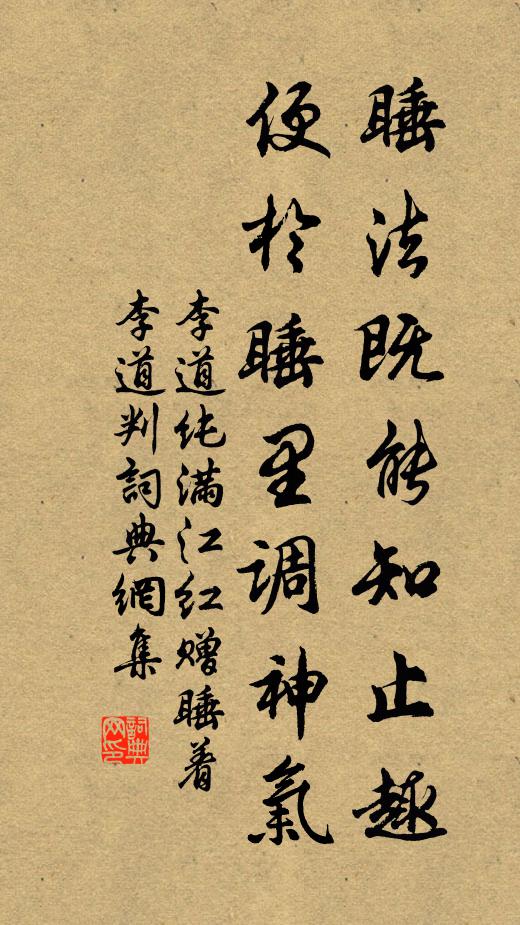 睡法既能知止趣
便於睡里调神氣
李道纯满江红赠睡着
李道判詞典網集
詞典网印